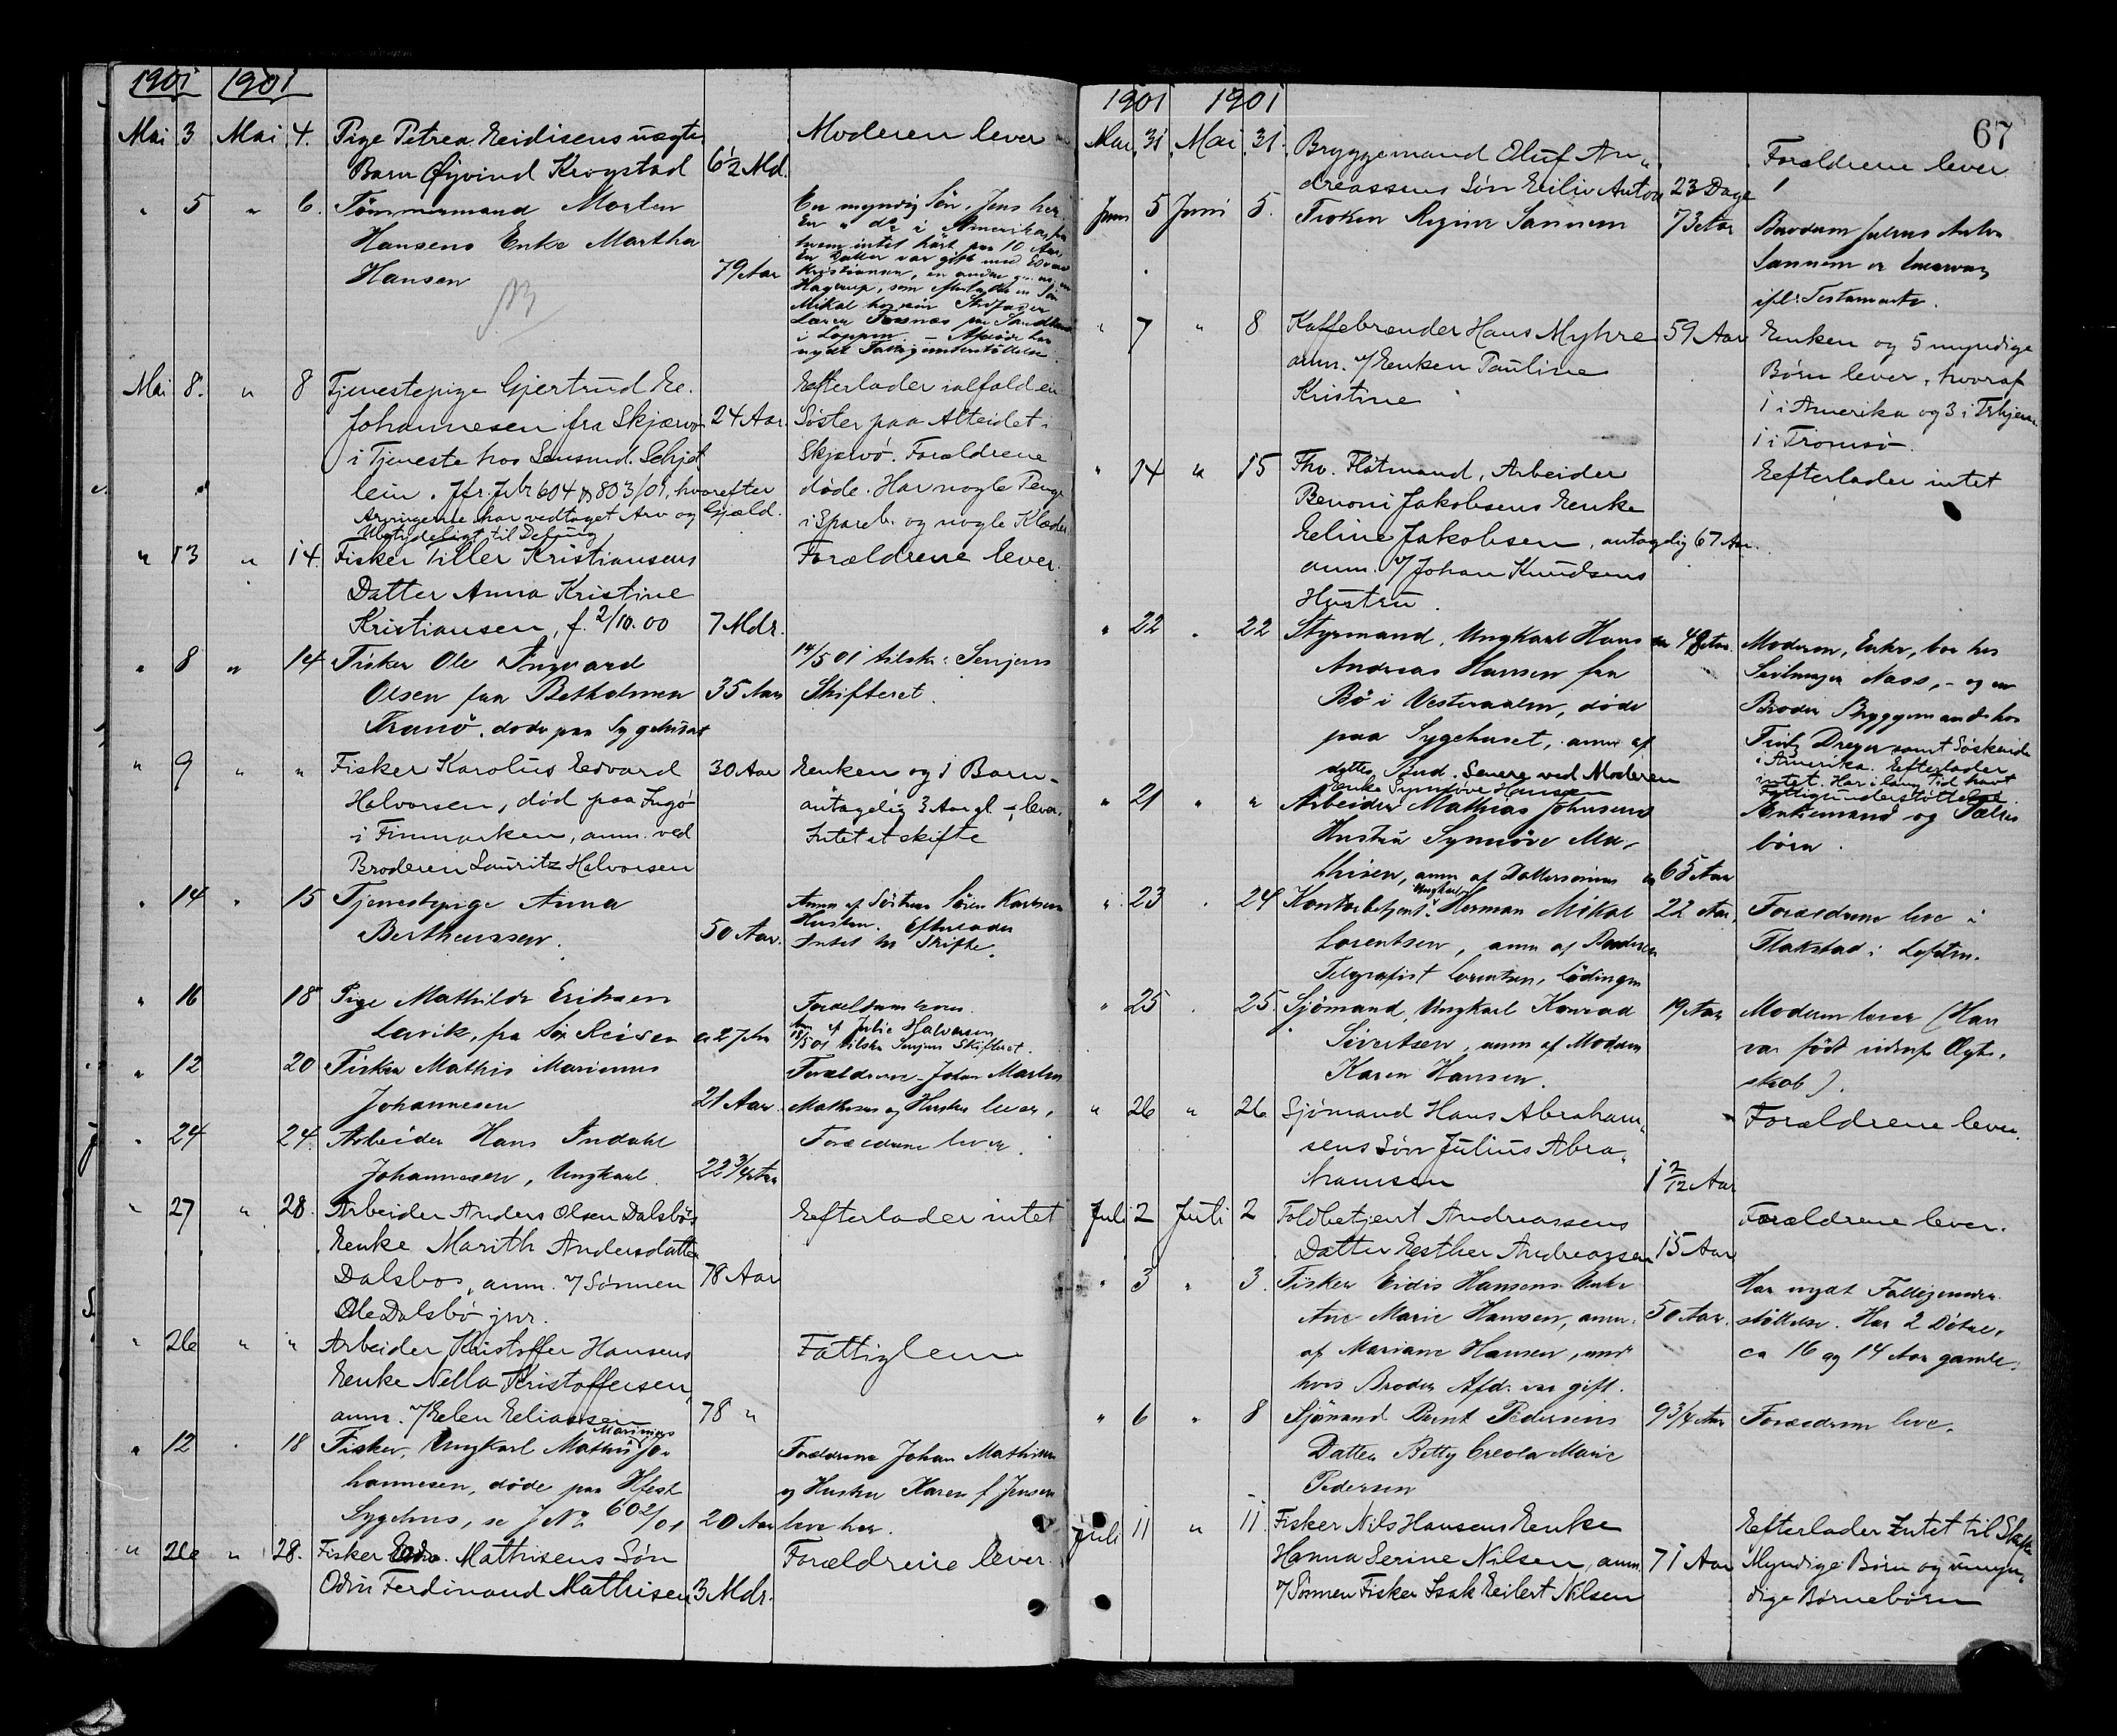 1901 1901
Mai 3 Mai 4. Pige Petrea Eidisens uægte Moderen lever
Barn Øyvind Krogstad 6½ Md.
" 5 " 6. Tømmermand Morten En myndig Søn, Jens her.
Hansens Enke Martha En " do i Amerika, fra
Hansen 79 Aar hvem intet hørt paa 10 Aar,
En Datter var gift med Edvard
Kristiansen, en anden
Hagerup, som efterlod en Søn
Mikal hos sin Stiffader
i Loppen. – Afdøde har
nydt Fattigunderstøttelse.
Mai 8. " 8 Tjenestepige Gjertrud E. Efterlader ialfald en
Johannesen fra Skjærvø 24 Aar. Søster paa Alteidet i
i Tjeneste hos Lensmd. Schjel Skjærvø. Forældrene
lein. Jfr. Jr. 604 & 803/01, hvorefter døde. Har nogle Penge
Arvingerne har vedtaget Arv og Gjæld. i Spareb. og nogle Klæder.
" 13 " 14. Fisker Tiller Kristiansens Forældrene lever.
Datter Anna Kristine
Kristiansen, f. 2/10.00 7 Mdr.
" 8 " 14 Fisker Ole Ingvard 14/5 01 tilskr. Senjens
Olsen fra Betholmen 35 Aar Skifteret.
Tranø, døde paa Sygehuset
" 9 " " Fisker Karolus Edvard 30 Aar Enken og 1 Barn –
Halvorsen, død paa Ingø antagelig 3 Aar gl. –, lever.
i Finmarken, anm. ved Intet at skifte
Broderen Lauritz Halvorsen
" 14 " 15 Tjenestepige Anna Anm. af Søsteren Søren Karlsens
Bertheussen. 50 Aar. Hustru. Efterlader
Intet til Skifte.
" 16 18 Pige Mathilde Eriksen
Lervik, fra Sør Reisen ca 27 Aar Anm. af Julie Halvorsen
18/5 01 tilskr. Senjens Skifteret.
" 12 20 Fisker Mathis Marinus Forældrene – Johan Martin
Johannesen 21 Aar. Mathisen og Hustru lever.
" 24 24. Arbeider Hans Indahl Forældrene lever.
Johannesen, Ungkarl. 22¾ Aar
" 27 " 28. Arbeider Anders Olsen Dalsbøs Efterlader intet
Enke Marith Andersdatter
Dalsbø, anm. v/ Sønnen 78 Aar
Ole Dalsbø jnr.
" 26 " " Arbeider Kristoffer Hansens Fattiglem
Enke Nella Kristoffersen,
anm. v/ Elen Eliassen 78 "
Marinus
" 12 " 18 Fisker, Ungkarl Mathis Jo- Forældrene Johan Mathisen
hannesen, døde paa Hfest og Hustru Karen f. Jensen
Sygehus, se J No 602/01 20 Aar leve her.
" 26 " 28. Fisker Edv. Mathisens Søn Forældrene lever.
Odin Ferdinand Mathisen 3 Mdr.
67
1901 1901
Mai 31 Mai 31. Bryggemand Oluf An- Forældrene lever
dreassens Søn Eiliv Anton 23 Dage
Juni 5 Juni 5. Frøken Regine Sannem 73 Aar Brodum Julius Anton
Sannem er Enearving
ifl. Testamente.
" 7 " 8 Kaffebrænder Hans Myhre 59 Aar Enken og 5 myndige
anm. v/ Enken Pauline Børn lever, hvoraf
Kristine 1 i Amerika og 3 i Trhjem
1 i Tromsø
" 14 " 15 Fhv. Flötmand, Arbeider Efterlader intet
Benoni Jakobsens Enke
Eline Jakobsen, antagelig 67 Aar.
anm. v/ Johan Knudsens
Hustru.
" 22 " 22 Styrmand, Ungkarl Hans ca 48 Aar. Moderen, Enke, bor hos
Andreas Hansen fra Seilmager Nass, – og en
Bø i Vesteraalen, døde Broder Bryggemand hos
paa Sygehuset, anm. af Fritz Dreyer samt Søskende
dettes Bud. Senere ved Moderen i Amerika. Efterlader
Enke Synnøve Hansen intet. Har i lang Tid havt
Fattigunderstøttelse.
" 21 " " Arbeider Mathias Johnsens Enkemand og Fælles
Hustru Synnøve Ma- børn.
thisen, anm. af Dattersønnen ca 65 Aar
" 23 " 24 Kontorbetjent Ungkarl Herman Mikal 22 Aar Forældrene leve i
Lorentsen, anm. af Broderen Flakstad i Lofoten.
Telegrafist Lorentsen, Lødingen
" 25 " 25 Sjømand, Ungkarl Konrad 19 Aar Moderen lever (Han
Sivertsen, anm. af Moderen var født udenf. Ægte-
Karen Hansen. skab).
" 26 " 26 Sjømand Hans Abraham- Forældrene lever.
sens Søn Julius Abra-
hamsen 1 2/12 Aar
Juli 2 Juli 2 Toldbetjent Andreassens Forældrene lever.
Datter Esther Andreassen 15 Aar
" 3 " 3. Fisker Eidis Hansens Enke Har nydt Fattigunder-
Ane Marie Hansen, anm. 50 Aar. støttelse. Har 2 Døtre,
af Mariane Hansen, med ca 16 og 14 Aar gamle.
hvis Broder Afd. var gift.
" 6 " 8 Sjømand Bernt Pedersens 9¾ Aar Forældrene leve.
Datter Betty Creola Marie
Pedersen
Juli 11 " 11. Fisker Nils Hansens Enke Efterlader Intet til Skifte
Hanna Serine Nilsen, anm. 71 Aar Myndige Børn og umyn-
v/ Sønnen Fisker Isak Eilert Nilsen dige Børnebørn